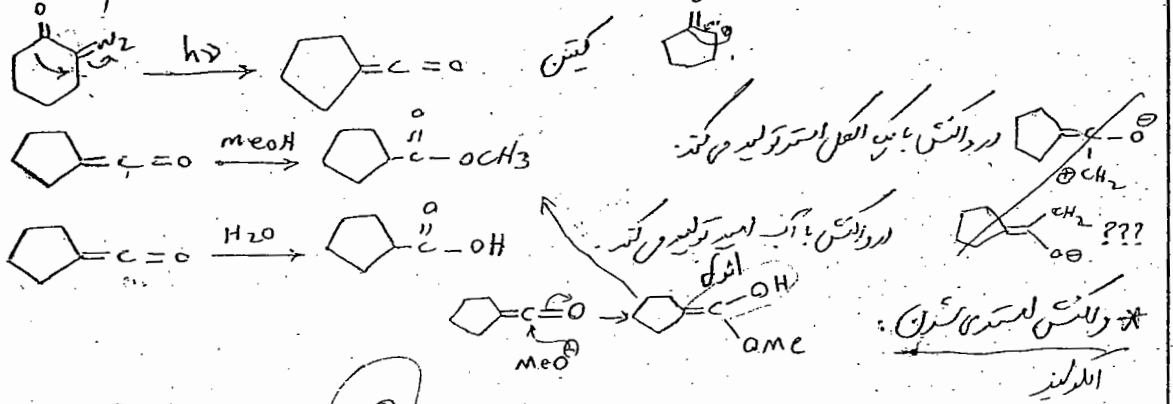 O N2 hν =C=O کیتن
=C=O MeOH O C - OCH3 در واکنش با یک الکل استر تولید می کند. =C-O⊖ ⊕CH2
=C=O H2O O C - OH در واکنش با آب اسید تولید می کند. CH2 O⊖ ???
=C=O MeO⊖ → انول =C-OH OMe
* واکنش استری شدن :